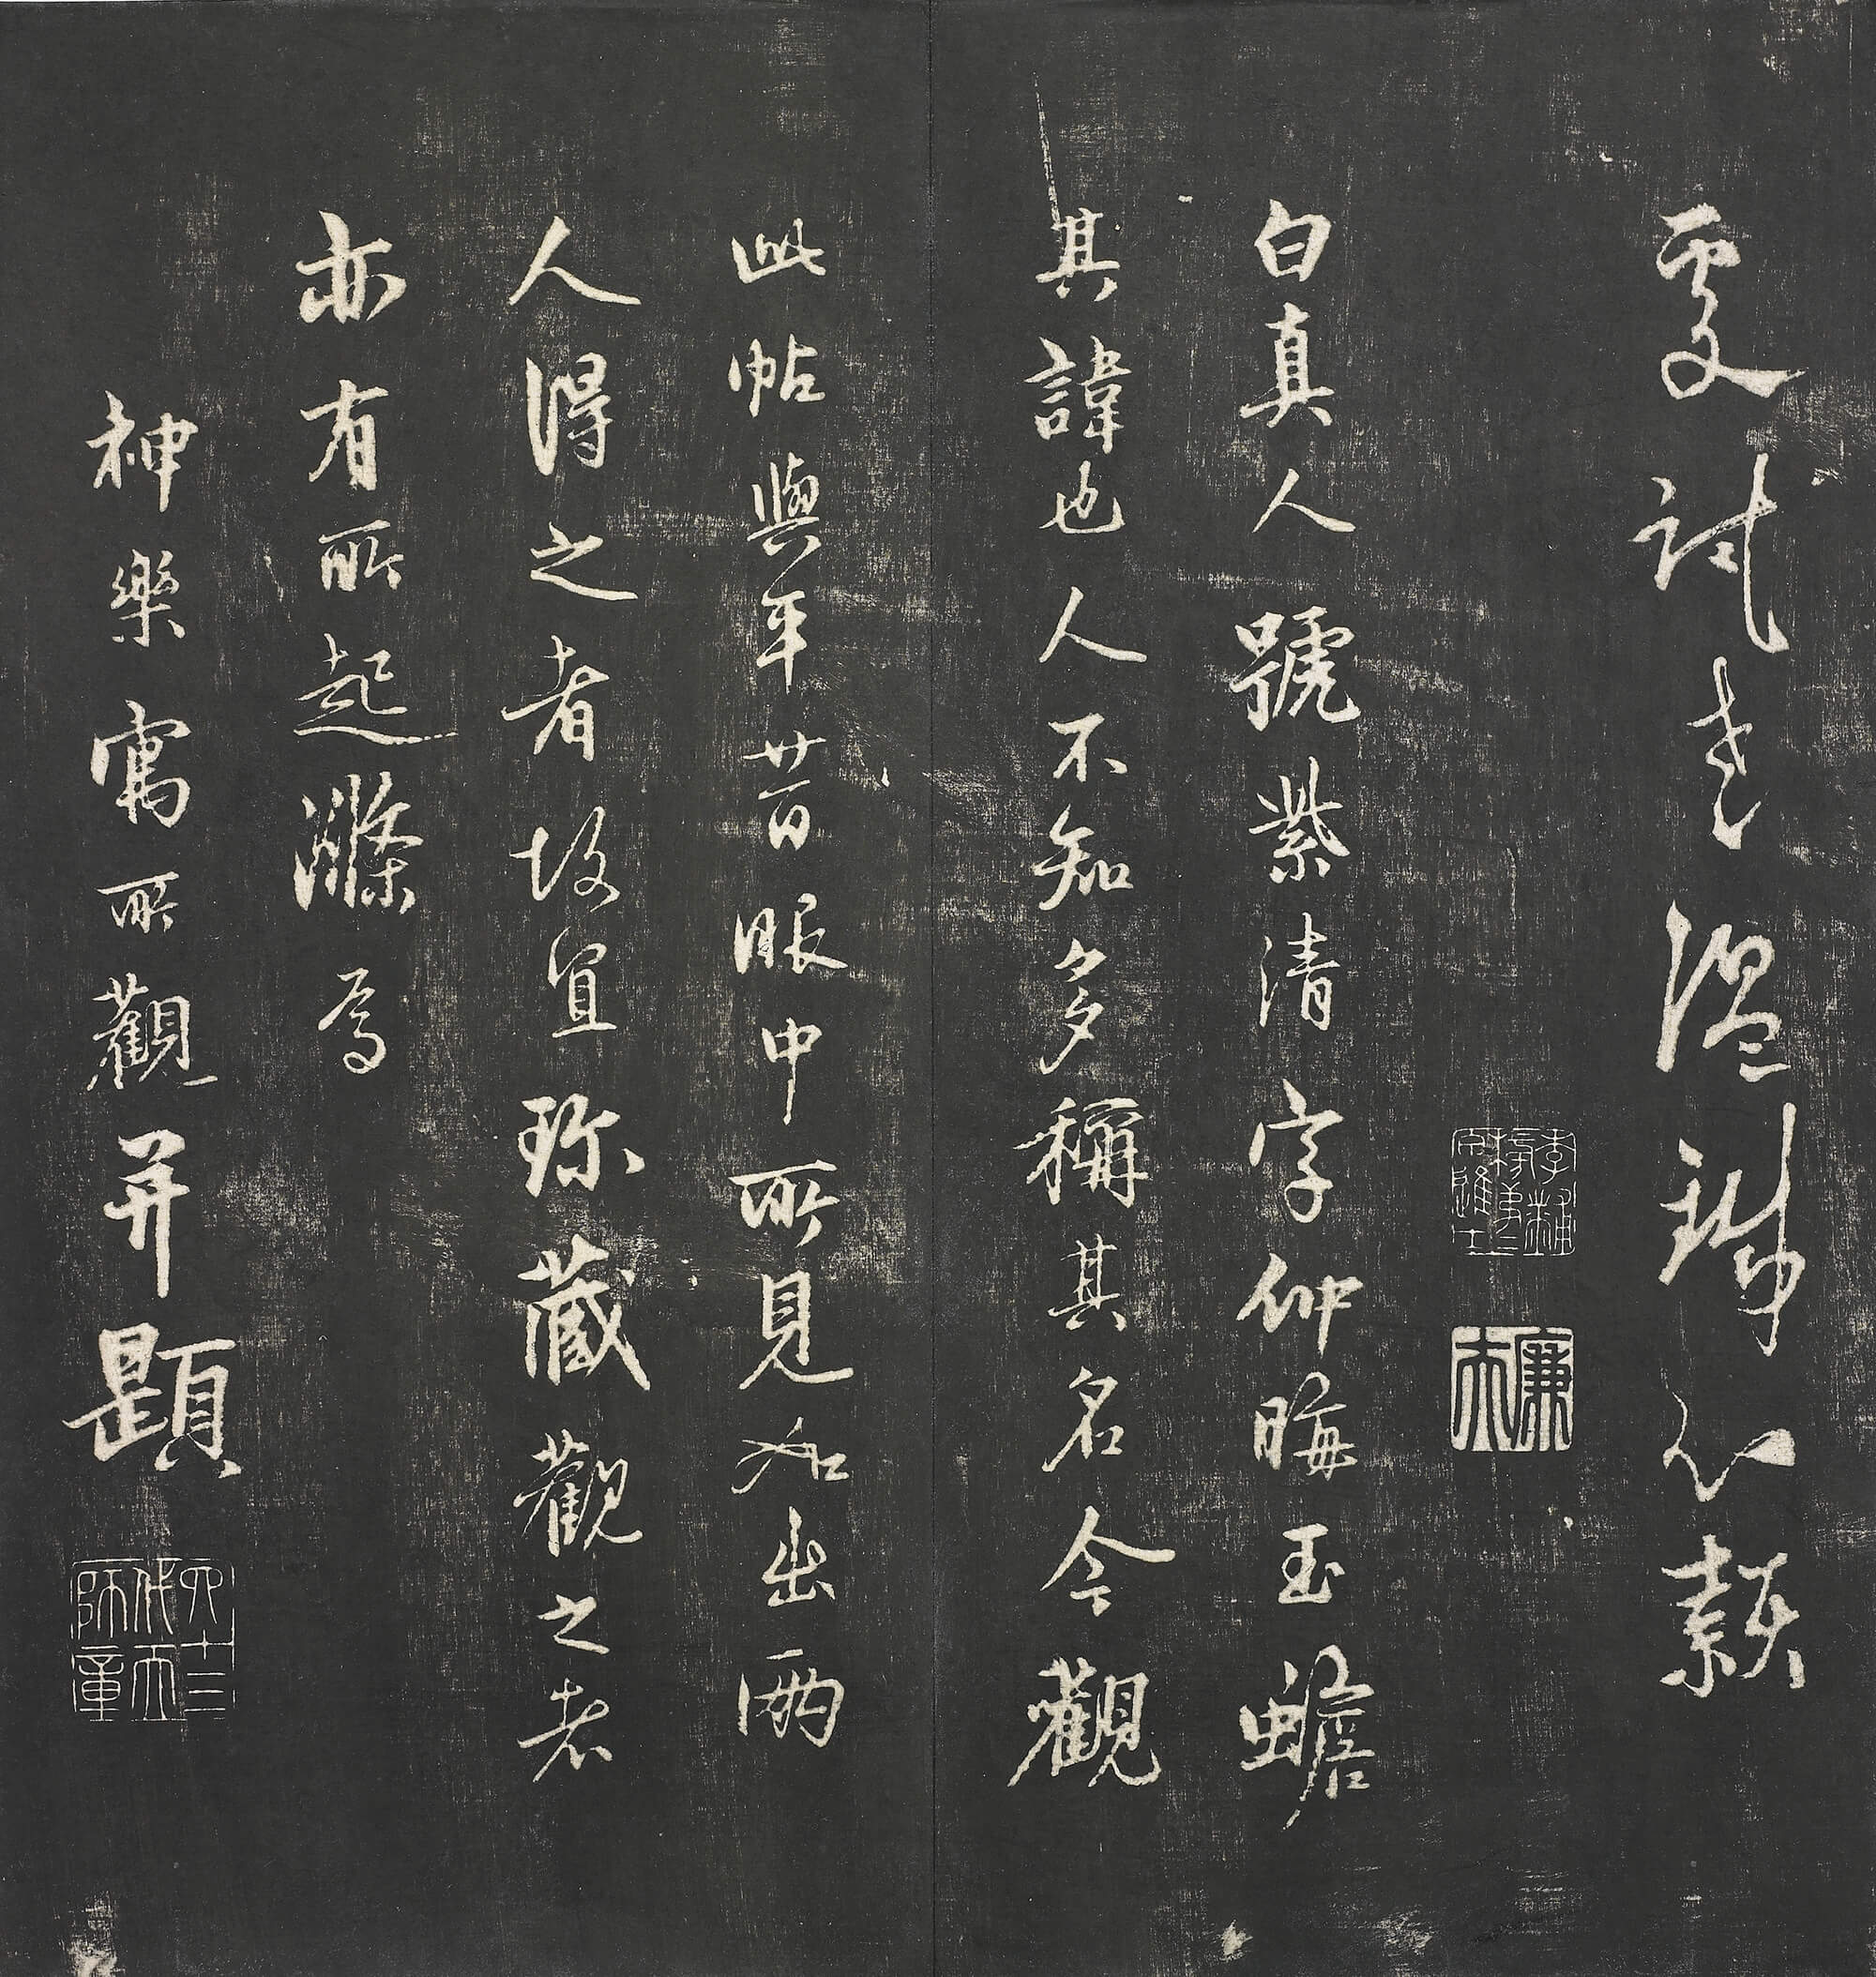 試老溫心穎
李黼榜第二甲進士
廉夫
白真人號紫清字仰晦玉蟾
其諱也人不知多稱其名今觀
此帖與平昔眼中所見如出兩
人得之者故宜珍藏觀之者
亦有所起滌焉
神樂寓所觀并題
四十三代天師章